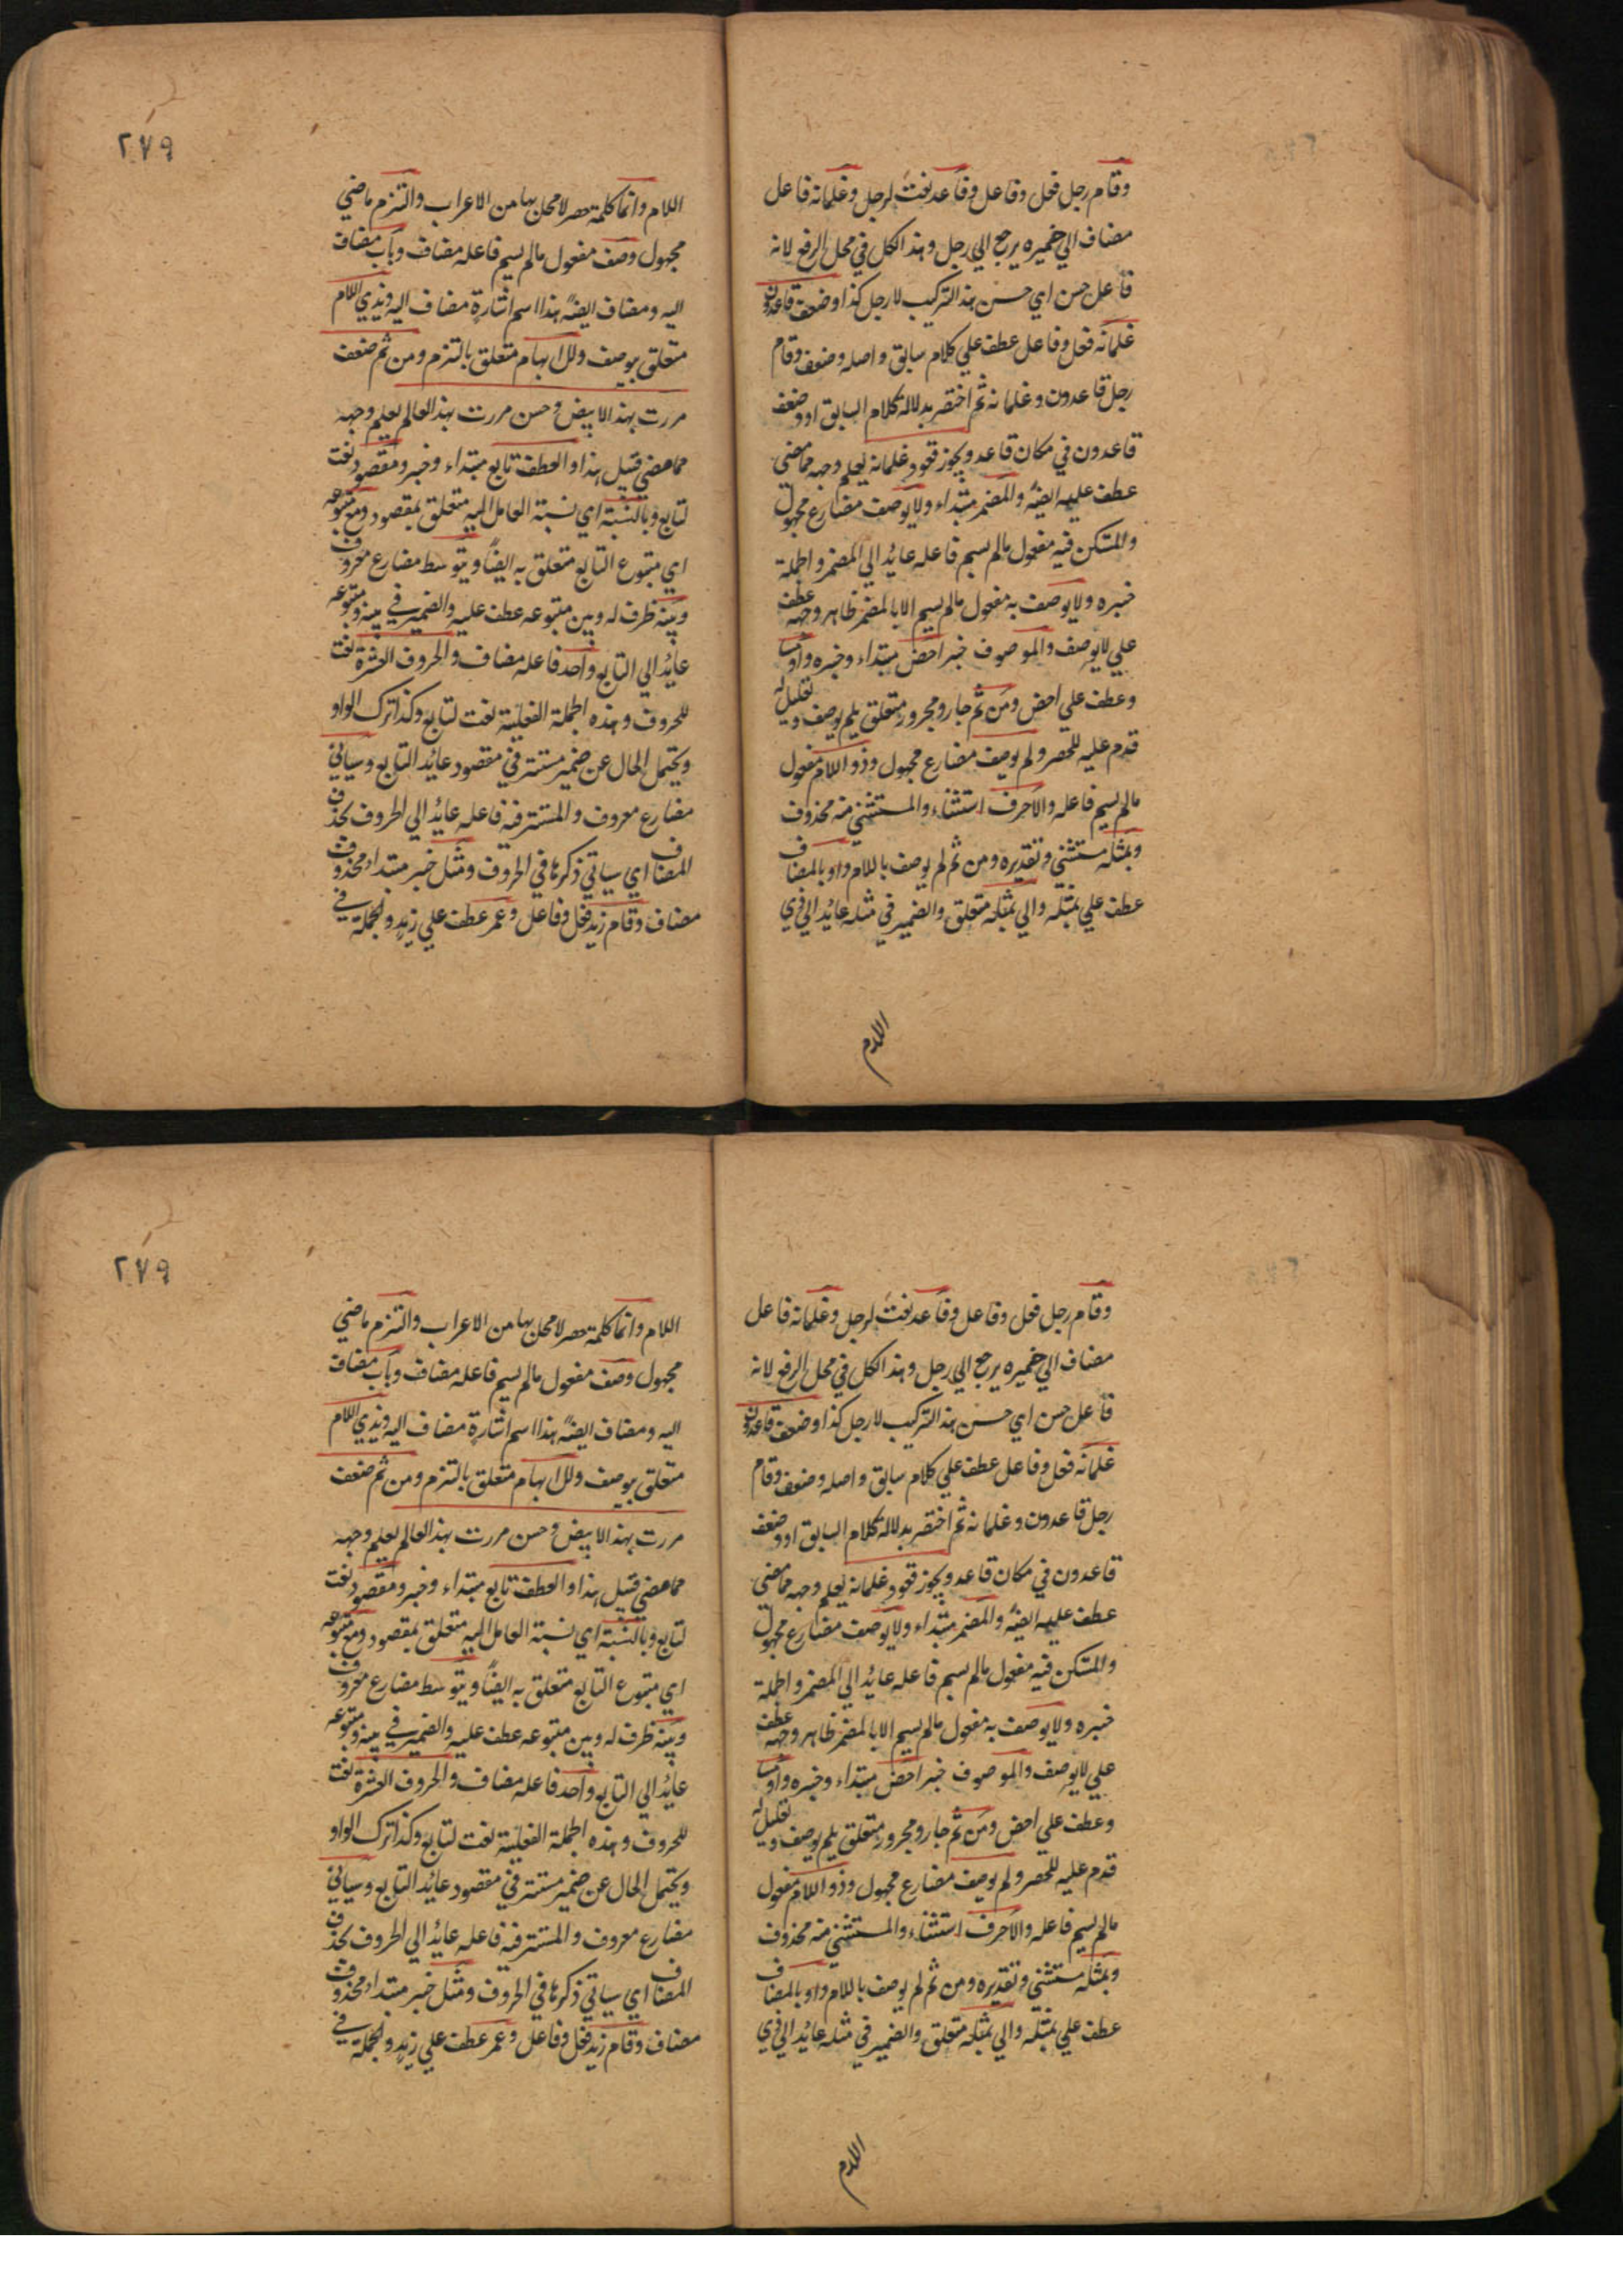 وقام رجل فعل وفاعل وقاعد نعت لرجل وغلمانه فاعل
مضاف الي ضميره يرجع الي رجل وهذا الكل في محل الرفع لانه
فاعل حسن اي حسن هذا التركيب لا رجل كذا وضعف قاعدون
غلمانه فعل وفاعل عطف علي كلام سابق واصله وضعف وقام
رجل قاعدون وغلمانه ثم اختصر بدلالة كلام السابق او وضعف
قاعدون في مكان قاعد ويجوز قعود غلمانه يعلم وجهه مما مضي
عطف عليه ايضا والمضمر مبتداء ولا يوصف مضارع مجهول
والمستكن فيه مفعول مالم يسم فاعله عائد الي المضمر والجملة
خبره ولا يوصف به مفعول مالم يسم الا بالمضمر ظاهر وجهه عطف
علي لا يوصف والموصوف خبر اخص مبتداء وخبره واو مسا
وعطف علي اخص ومن ثم جار ومجرور متعلق بلم يوصف وتعليل له
قدم عليه للحصر ولم يوصف مضارع مجهول وذو اللام مفعول
مالم يسم فاعله والاحرف استثناء والمستثني منه محذوف
وبمثله مستثني وتقديره ومن ثم لم يوصف باللام واو بالمضاف
عطف علي بمثله والي بمثله متعلق والضمير في مثله عائد الي ذي
اللام
٢٧٩
اللام وانما كلمة حصر لا محل بها من الاعراب والتزم ماضي
مجهول وصف مفعول مالم يسم فاعله مضاف وباب مضاف
اليه ومضاف ايضا هذا اسم اشارة مضاف اليه وبذي اللام
متعلق بوصف وللابهام متعلق بالتزم ومن ثم ضعف
مررت بهذا الابيض وحسن مررت بهذا العالم يعلم وجهه
مما مضي قبيل هذا والعطف تابع مبتداء وخبر ومقصود نعت
لتابع وبالنسبة اي نسبة العامل اليه متعلق بمقصود ومع متبوعه
اي متبوع التابع متعلق به ايضا ويتوسط مضارع معروف
وبينه ظرف له وبين متبوعه عطف عليه والضمير في بينه ومتبوعه
عائد الي التابع واحد فاعله مضاف والحروف العشرة نعت
للحروف وهذه الجملة الفعلية نعت لتابع وكذا ترك الواو
ويحتمل الحال عن ضمير مستتر في مقصود عائد التابع وسياتي
مضارع معروف والمستتر فيه فاعله عائد الي الحروف بحذف
المضاف اي سياتي ذكرها في الحروف ومثل خبر مبتداء محذوف
مضاف وقام زيد فعل وفاعل وعمر عطف علي زيد والجملة في
وقام رجل فعل وفاعل وقاعد نعت لرجل وغلمانه فاعل
مضاف الي ضميره يرجع الي رجل وهذا الكل في محل الرفع لانه
فاعل حسن اي حسن هذا التركيب لا رجل كذا وضعف قاعدون
غلمانه فعل وفاعل عطف علي كلام سابق واصله وضعف وقام
رجل قاعدون وغلمانه ثم اختصر بدلالة كلام السابق او وضعف
قاعدون في مكان قاعد ويجوز قعود غلمانه يعلم وجهه مما مضي
عطف عليه ايضا والمضمر مبتداء ولا يوصف مضارع مجهول
والمستكن فيه مفعول مالم يسم فاعله عائد الي المضمر والجملة
خبره ولا يوصف به مفعول مالم يسم الا بالمضمر ظاهر وجهه عطف
علي لا يوصف والموصوف خبر اخص مبتداء وخبره واو مسا
وعطف علي اخص ومن ثم جار ومجرور متعلق بلم يوصف وتعليل له
قدم عليه للحصر ولم يوصف مضارع مجهول وذو اللام مفعول
مالم يسم فاعله والاحرف استثناء والمستثني منه محذوف
وبمثله مستثني وتقديره ومن ثم لم يوصف باللام واو بالمضاف
عطف علي بمثله والي بمثله متعلق والضمير في مثله عائد الي ذي
اللام
٢٧٩
اللام وانما كلمة حصر لا محل بها من الاعراب والتزم ماضي
مجهول وصف مفعول مالم يسم فاعله مضاف وباب مضاف
اليه ومضاف ايضا هذا اسم اشارة مضاف اليه وبذي اللام
متعلق بوصف وللابهام متعلق بالتزم ومن ثم ضعف
مررت بهذا الابيض وحسن مررت بهذا العالم يعلم وجهه
مما مضي قبيل هذا والعطف تابع مبتداء وخبر ومقصود نعت
لتابع وبالنسبة اي نسبة العامل اليه متعلق بمقصود ومع متبوعه
اي متبوع التابع متعلق به ايضا ويتوسط مضارع معروف
وبينه ظرف له وبين متبوعه عطف عليه والضمير في بينه ومتبوعه
عائد الي التابع واحد فاعله مضاف والحروف العشرة نعت
للحروف وهذه الجملة الفعلية نعت لتابع وكذا ترك الواو
ويحتمل الحال عن ضمير مستتر في مقصود عائد التابع وسياتي
مضارع معروف والمستتر فيه فاعله عائد الي الحروف بحذف
المضاف اي سياتي ذكرها في الحروف ومثل خبر مبتداء محذوف
مضاف وقام زيد فعل وفاعل وعمر عطف علي زيد والجملة في